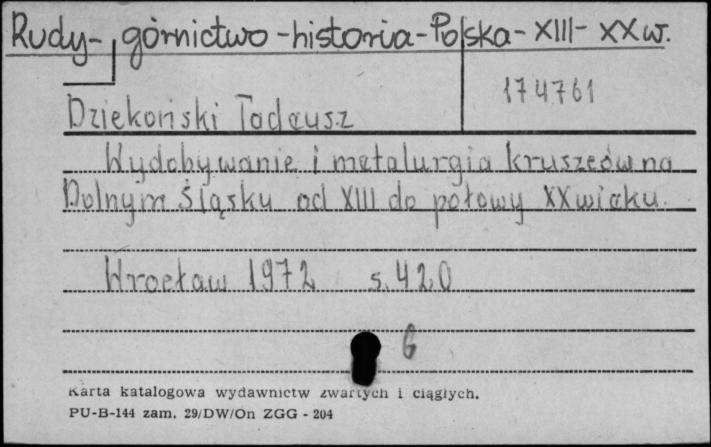 Rudy-górnictwo-historia-Polska-XIII-XXw.
174761
Dziekoński Tadeusz
Wydobywanie i metalurgia kruszców na
Dolnym Śląsku od XIII do połowy XX wieku.
Wrocław 1972 s. 420
6
Karta katalogowa wydawnictw zwartych i ciągłych.
PU-B-144 zam. 29/DW/On ZGG - 204